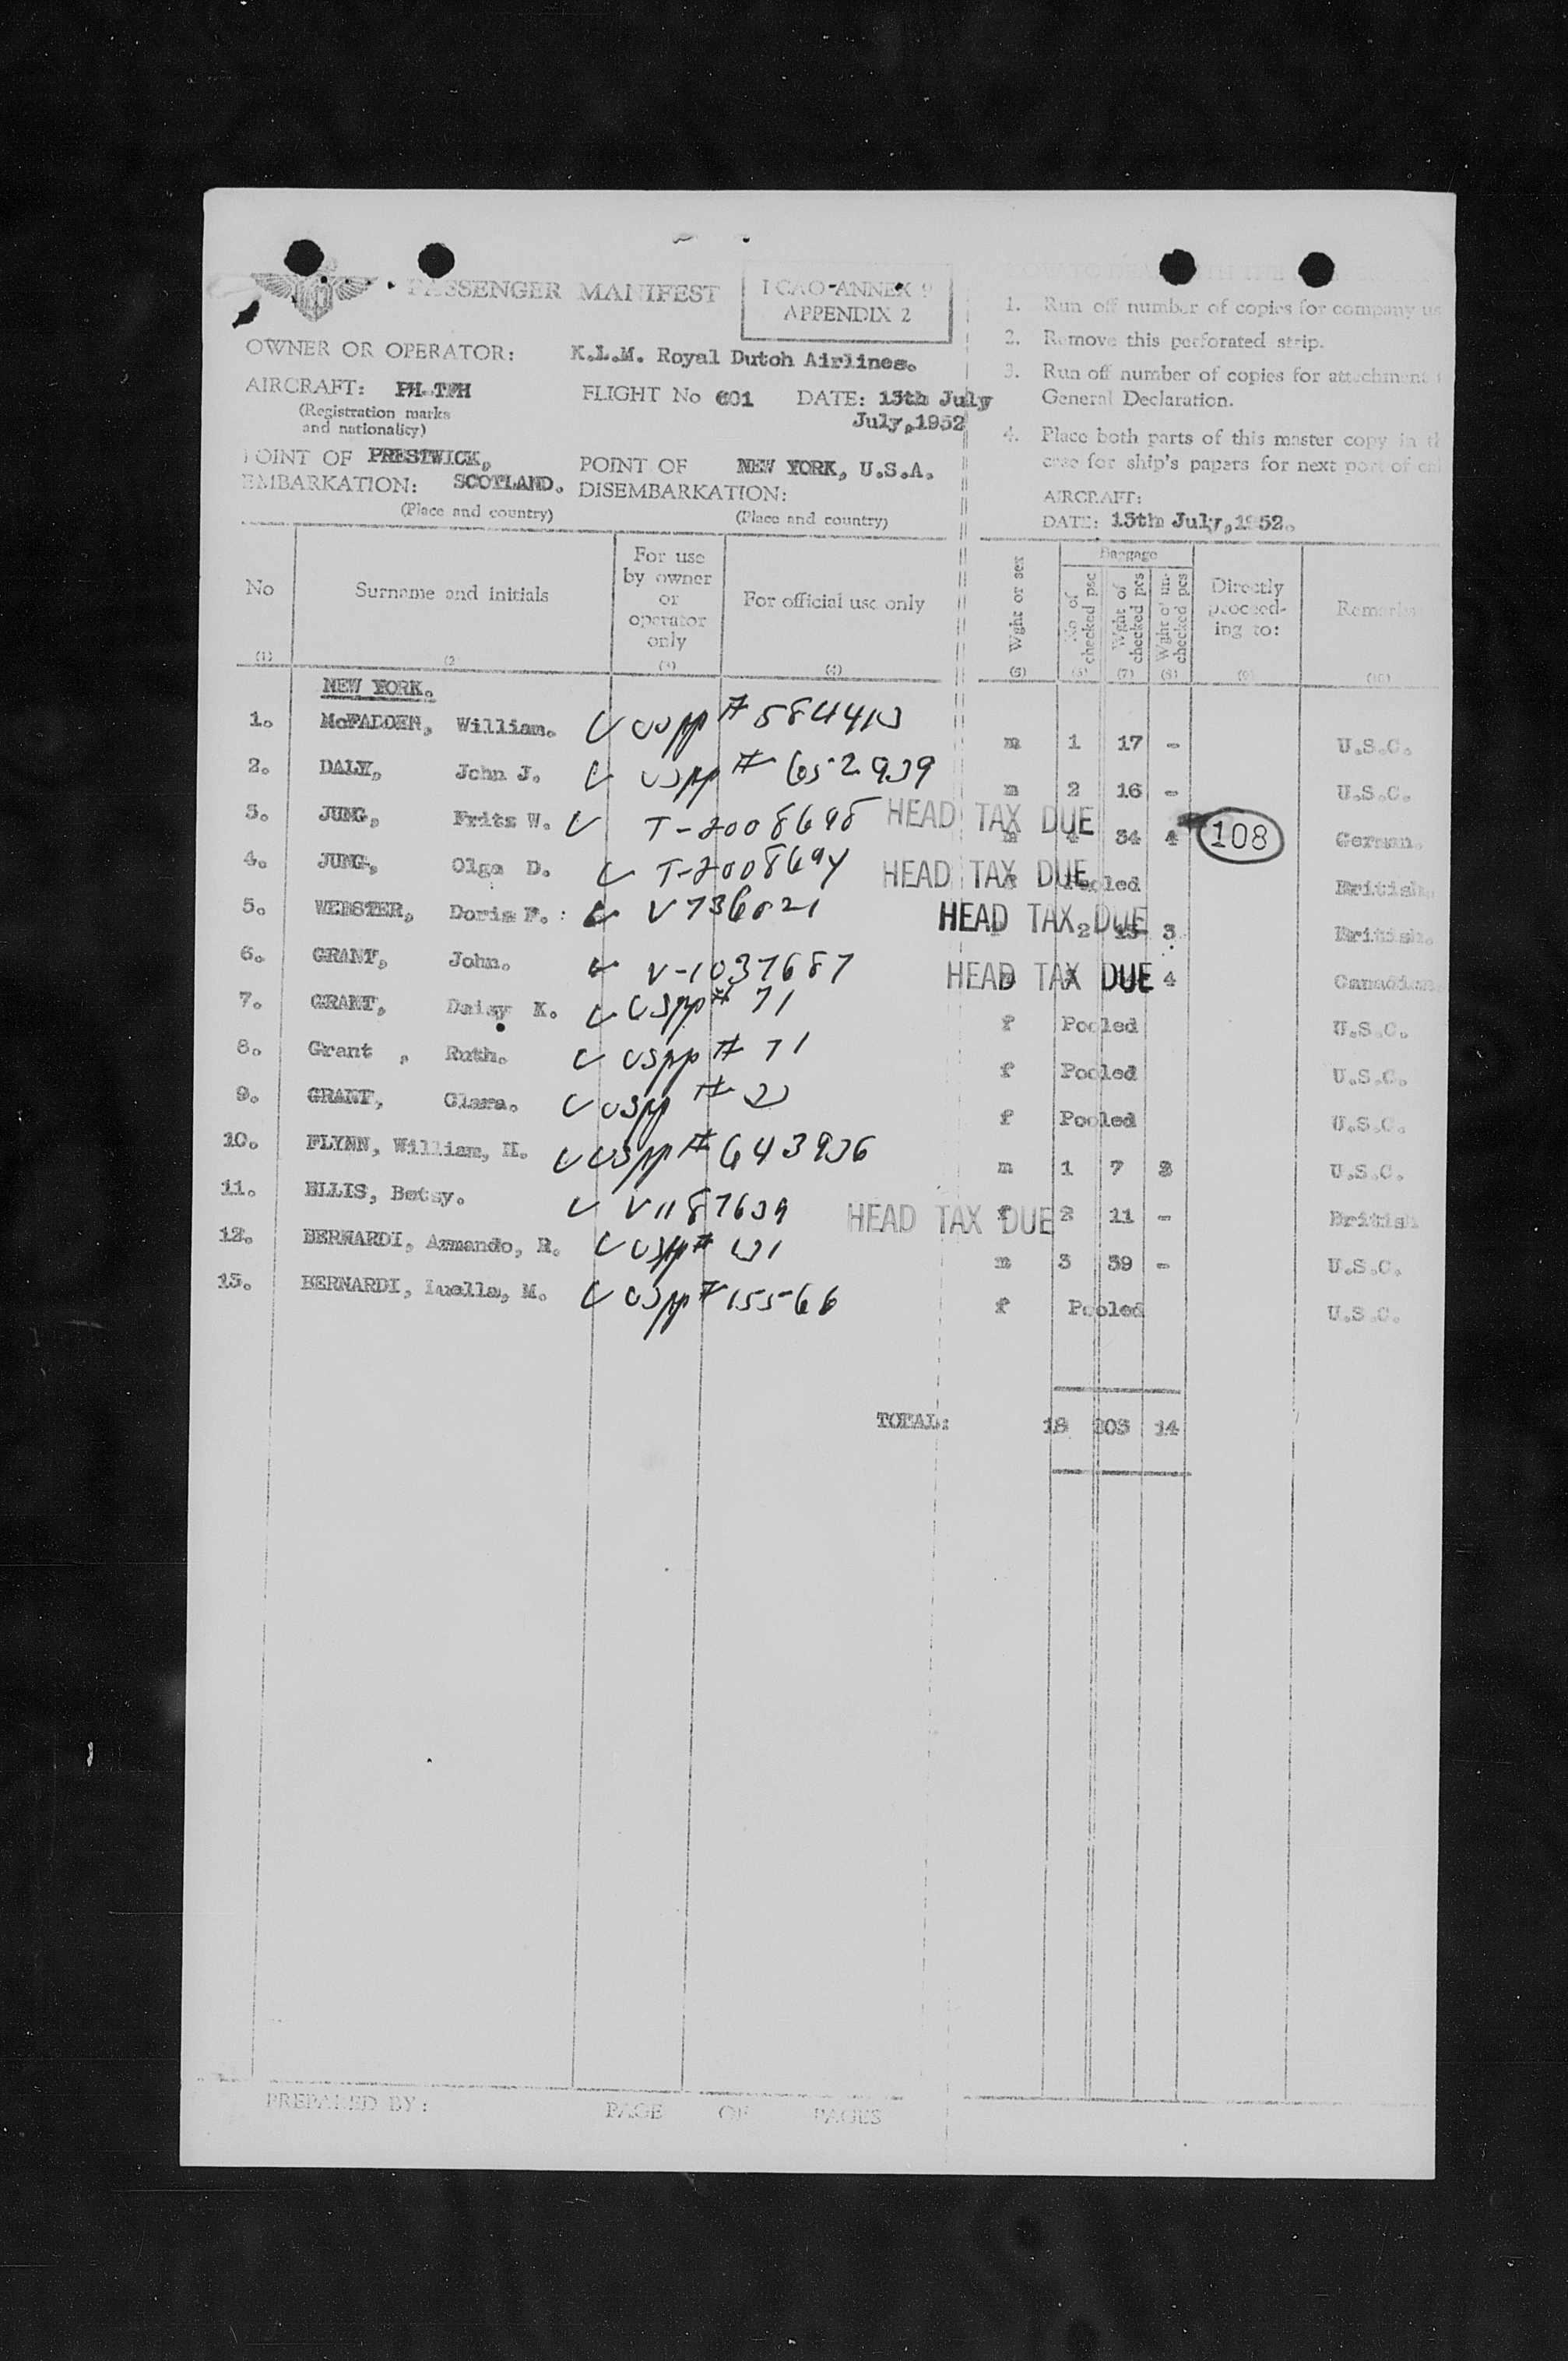 PASSENGER MANIFEST
ICAO-ANNEX 9
APPENDIX 2
OWNER OR OPERATOR: K.L.M. Royal Dutch Airlines.
AIRCRAFT: PH-TPH FLIGHT No 601 DATE: 15th July
(Registration marks July,1952
and nationality)
POINT OF PRESTWICK, POINT OF NEW YORK, U.S.A.
EMBARKATION: SCOTLAND. DISEMBARKATION:
(Place and country) (Place and country)
1. Run off number of copies for company us
2. Remove this perforated strip.
3. Run off number of copies for attachment
General Declaration.
4. Place both parts of this master copy in th
case for ship's papers for next port of call
AIRCRAFT:
DATE: 15th July,1952.
No Surname and initials For use by owner or operator only For official use only Wght or sex Baggage No of checked psc Wght of checked pcs Wght of un-checked pcs Directly proceed-ing to: Remarks
(1) (2 (3) (4) (5) (6) (7) (8) (9) (10)
NEW YORK.
1. McFADDEN, William. USpp # m 1 17 - U.S.C.
2. DALY, John J. USpp # 652939 m 2 16 - U.S.C.
3. JUNG, Fritz W. T-2008695 HEAD TAX DUE m 4 34 4 108 German.
4. JUNG, Olga D. T-2008694 HEAD TAX DUE Pooled British.
5. WEBSTER, Doris F. V736021 HEAD TAX DUE 2 15 3 British.
6. GRANT, John. V-1037687 HEAD TAX DUE 4 Canadian
7. GRANT, Daisy K. USpp # 71 f Pooled U.S.C.
8. Grant , Ruth. USpp # 71 f Pooled U.S.C.
9. GRANT, Clara. USpp # f Pooled U.S.C.
10. FLYNN, William, H. USpp # 643936 m 1 7 3 U.S.C.
11. ELLIS, Betsy. V1187639 HEAD TAX DUE f 2 11 - British
12. BERNARDI, Armando, R. USpp # m 3 39 - U.S.C.
13. BERNARDI, Luella, M. USpp # 15566 f Pooled U.S.C.
TOTAL: 18 203 14
PREPARED BY: PAGE OF PAGES